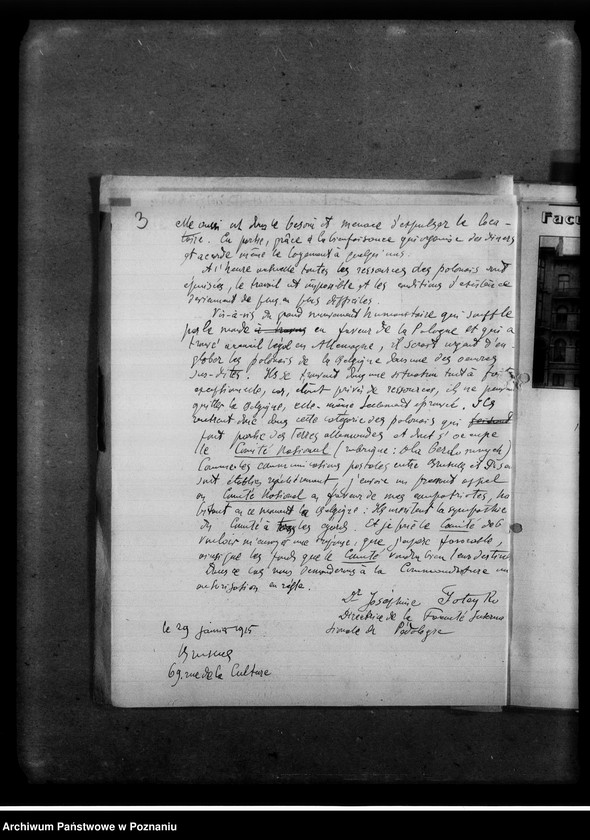 3
elle aussi est dans le besoin et menace d'expulser le loca-
taire. En partie, grâce à la bienfaisance qui organise des diners
et accorde même le logement à quelques uns.
A l'heure actuelle toutes les ressources des polonais sont
épuisées, le travail est impossible et les conditions d'existence
deviennent de plus en plus difficiles.
Vis-à-vis du grand mouvement humanitaire qui souffle
par le monde en faveur de la Pologne et qui a
trouvé accueil légal en Allemagne, il serait urgent d'en
glober les polonais de la Belgique dans une des oeuvres
sus-dites. Ils se trouvent dans une situation tout à fait
exceptionnelle, car, étant privés de ressources, il ne peuvent
quitter la Belgique, elle-même tellement éprouvée. Ils
rentrent donc dans cette catégorie des polonais qui
font partie des terres allemandes et dont s'occupe
le Comité National (rubrique:
Comme les communications postales entre Bruxelles et
sont établies régulièrement, j'envoie un pressant appel
au Comité National en faveur de mes compatriotes, ha
bitant en ce moment la Belgique: Ils méritent la sympathie
du Comité à tous les égards. Et je prie le Comité de
vouloir m'envoyer une réponse, que j'espère favorable,
ainsi que les fonds que le Comité voudra bien leur destiner
Dans ce cas nous demanderons à la Commandanture un
autorisation en règle.
Dr Joséphine Joteyko
Directrice de la Faculté Interna
tionale de Pédologie
le 29 janvier 1915.
Bruxelles
69. rue de la Culture
Facu
Archiwum Państwowe w Poznaniu